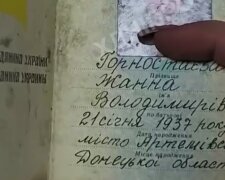 ДЯНИН УКРАЇНИ
Горностаєва
Прізвище
Жанна
Ім'я
Володимирів
По батькові
21 січня 1937 року
Дата народження
місто Артемівс
Місце народження
Донецької област